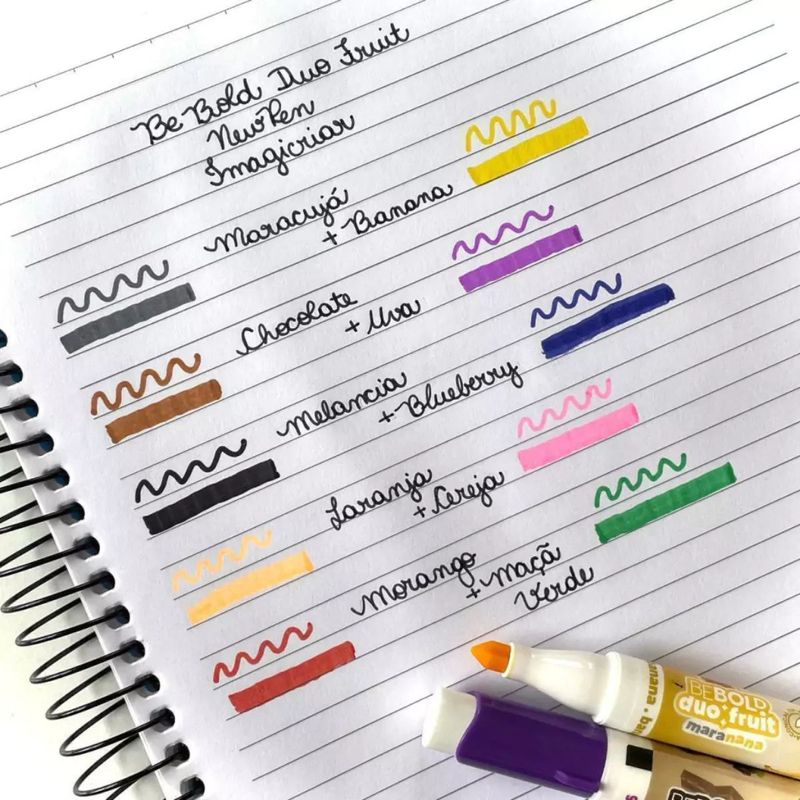 Be Bold Duo Fruit
NewPen
Imagicriar
Maracujá
+ Banana
Chocolate
+ Uva
Melancia
+ Blueberry
Laranja
+ Cereja
Morango
+ Maçã
Verde
BEBOLD
duo fruit
maranana